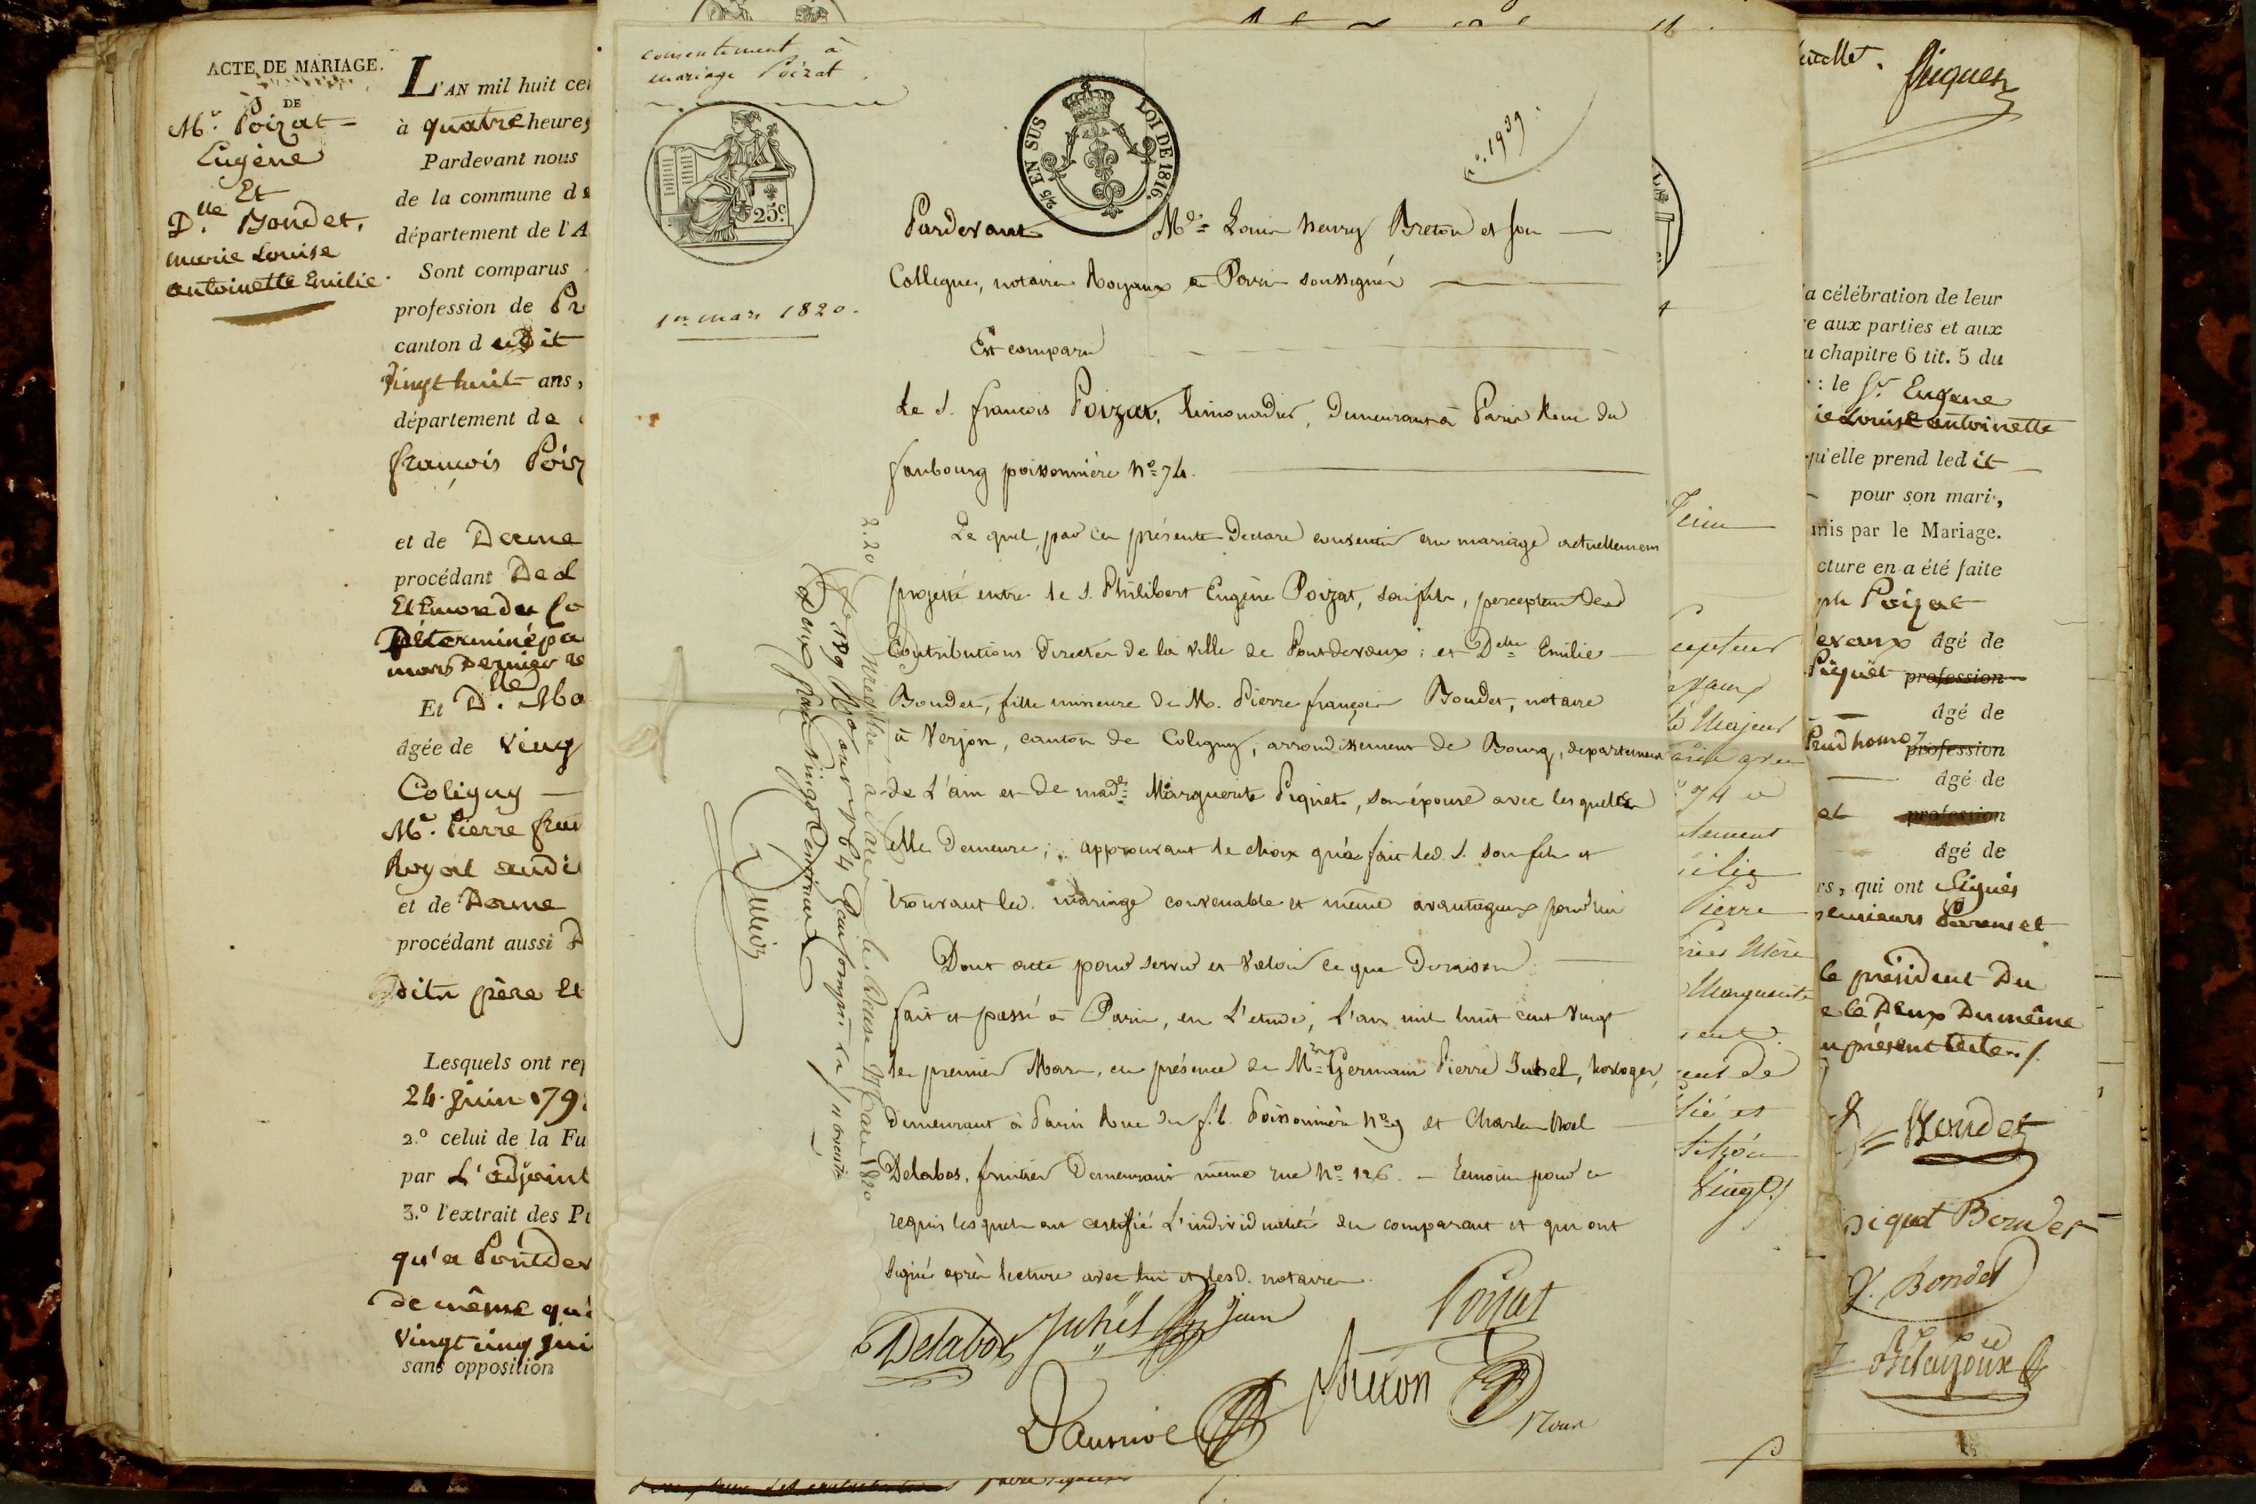 ACTE DE MARIAGE.
DE
Mr. Poizat
Eugène
Et
Dlle. Bondet,
marie Louise
antoinette Emilie.
L'AN mil huit cen
à quatre heures
Pardevant nous
de la commune d
département de l'A
Sont comparus
profession de Pr
canton d udit
vingt huit ans,
département de
françois Poiz
et de Dame
procédant De d
Déterminé pa
mars dernier
Et Dlle. Ma
âgée de Ving
Coligny
Me. Pierre fran
Royal audi
et de Dame
procédant aussi D
dits père et
Lesquels ont re
24. juin 179
2.° celui de la Fu
par L'adjoint
3.° l'extrait des Pu
qu'a Pontdev
de même qu'
Vingt cinq jui
sans opposition
consentement à
mariage Poizat.
25c
2/5 EN SUS
LOI DE 1816.
n°. 1939.
1er mars 1820.
Pardevant Me Louis henry Breton et son
Collegue, notaires Royaux a Paris soussignés
Est comparu
Le S. françois Poizat, limonadier, Demeurant à Paris Rue du
faubourg poissonnière n° 74.
Le quel par ces présentes Declare consentir au mariage actuellement
projetté entre le S. Philibert Eugène Poizat, son fils, percepteur des
Contributions Directes de la ville de Pontdevaux; et Delle Emilie
Bondet, fille mineure de M. Pierre françois Bondet, notaire
à Verjon, canton de Coligny, arrondissement de Bourg, departement
de L'ain et de made Marguerite Piquet, son épouse avec lesquels
elle Demeure; approuvant le choix qu'a fait led. S. son fils et
trouvant led. mariage convenable et même avantageux pour lui
Dont acte pour servir et valoir ce que De raison
fait et passé à Paris, en L'etude, L'an mil huit cent vingt
le premier Mars, en présence de Mrs Germain Pierre Juhel, horloger,
demeurant à Paris Rue du f.b. Poissonnière n° 9 et Charles Noel
Delabos, fruitier Demeurant même rue n° 126. – temoins pour ce
requis lesquels ont certifié L'individualité du comparant et qui ont
signé après lecture avec lui et lesd. notaires.
2.20
Enregistré à Paris le Douze Mars 1820
f° 189 R°
Deux francs vingt centimes
Delabos Juhel Poizat
Breton
cepteur
Majeur
74
Pierre
Mère
Marguerite
Vingt
Piquet
la célébration de leur
e aux parties et aux
u chapitre 6 tit. 5 du
: le Sr. Eugène
ie Louise antoinette
qu'elle prend ledit
pour son mari,
mis par le Mariage.
cture en a été faite
ph Poizat
evaux âgé de
Piquet profession
âgé de
Prudhome profession
âgé de
et profession
âgé de
rs, qui ont signés
Parens et
le président Du
Deux Du même
présent
Bondet
piquet Bondet
Bondet